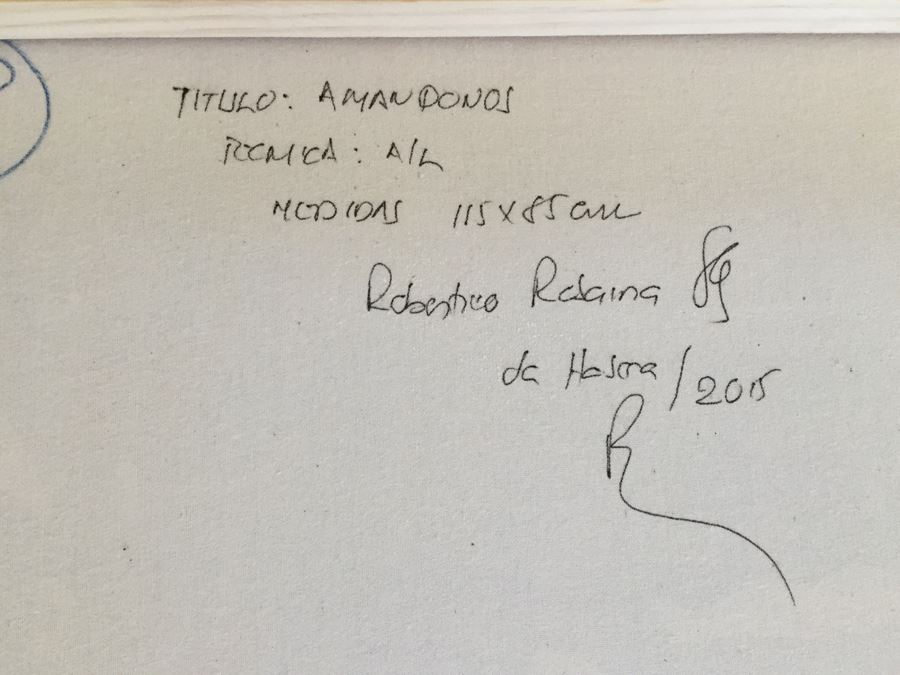 TITULO: AMANDONOS
TECNICA: A/L
MEDIDAS 115X85cm
Robertico Rolaina
da Hasma / 2015
R